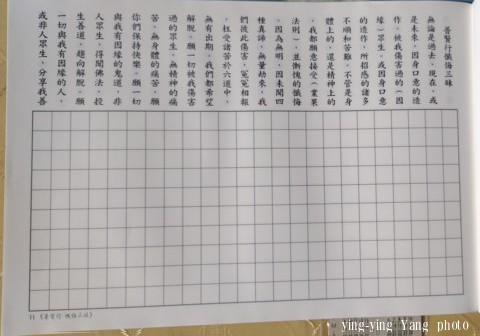 普賢行懺悔三昧
無論是過去、現在、或
是未來，因身口意的造
作，被我傷害過的（因
緣）眾生。或因身口意
的造作，所招感的諸多
不順和苦難，不管是身
體上的，還是精神上的
，我都願意接受（業果
法則），並慚愧的懺悔
。因為無明，因未聞四
種真諦，無量劫來，我
們彼此傷害，冤冤相報
，枉受諸苦於六道中，
無有出期。我們都希望
解脫。願一切被我傷害
過的眾生，無精神的痛
苦、無身體的痛苦。願
你們保持快樂。願一切
與我有因緣的鬼道，非
人眾生，得聞佛法，投
生善道，趣向解脫。願
一切與我有因緣的人，
或非人眾生，分享我善
11《普賢行 懺悔三昧》
ying-ying Yang photo